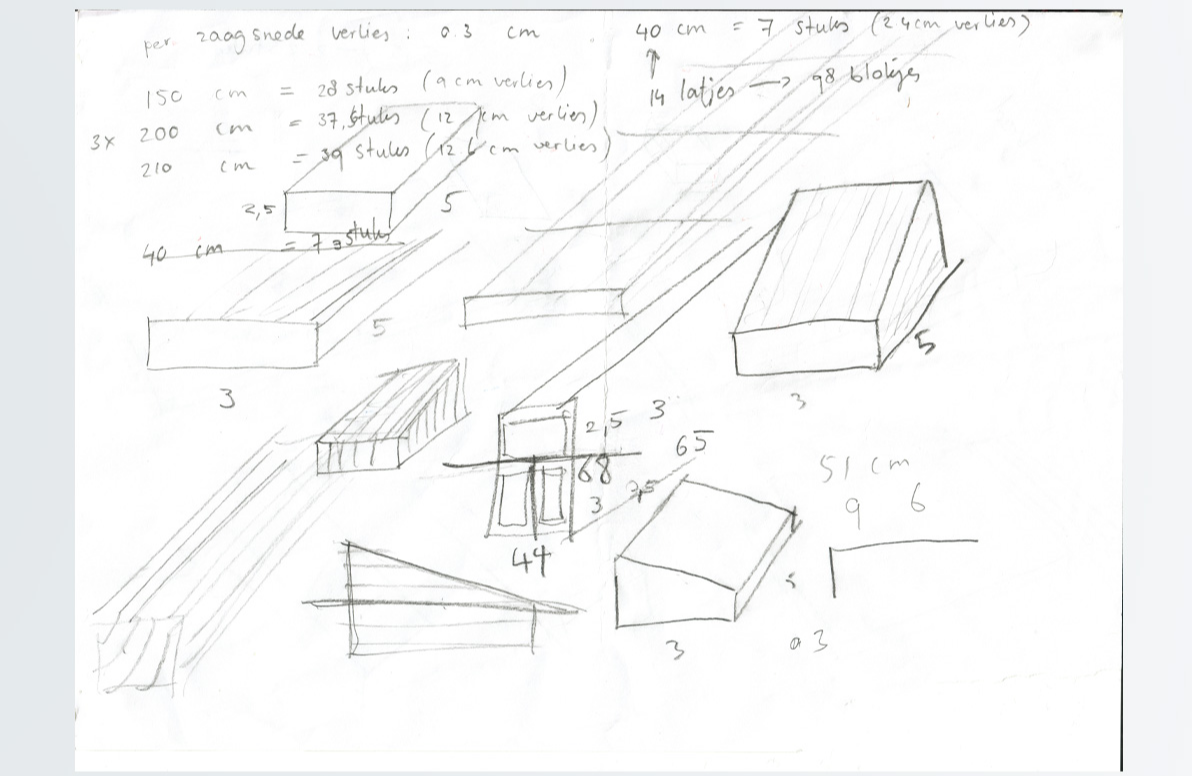 per zaagsnede verlies : 0.3 cm
40 cm = 7 stuks (2.4cm verlies)
14 latjes → 98 blokjes
150 cm = 28 stuks (9 cm verlies)
3x 200 cm = 37, stuks (12 cm verlies)
210 cm = 39 stuks (12 6 cm verlies)
2,5
5
40 cm = 7 stuks
5
3
5
3
2,5 3
65
68
3
44
51 cm
9 6
3
0 3